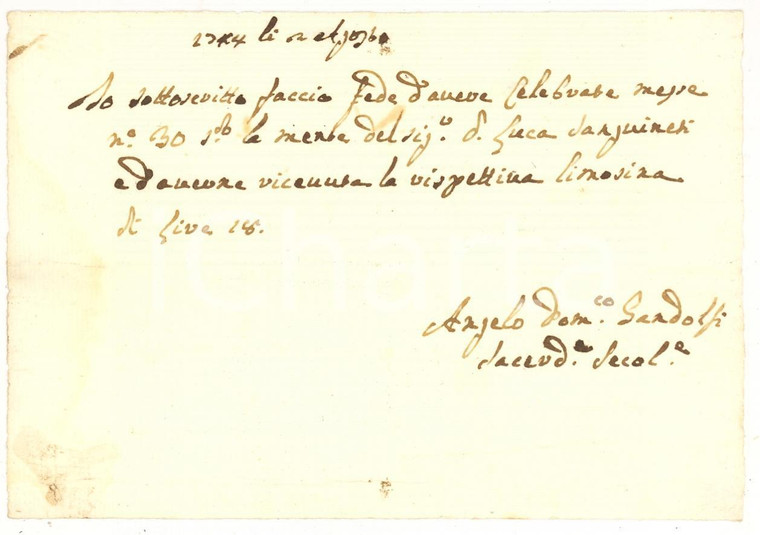 1744 li 2 Agosto
Io sottoscritto faccio fede d'avere Celebrate messe
nº. 30 sᵈº la mente del sigʳ. D. Luca Sanguineti
e d'averne ricevuta la rispettiva limosina
di Lire 18.
Angelo Domᶜᵒ. Gandolfi
Sacerdᵉ. Secolᵉ.
iCharta